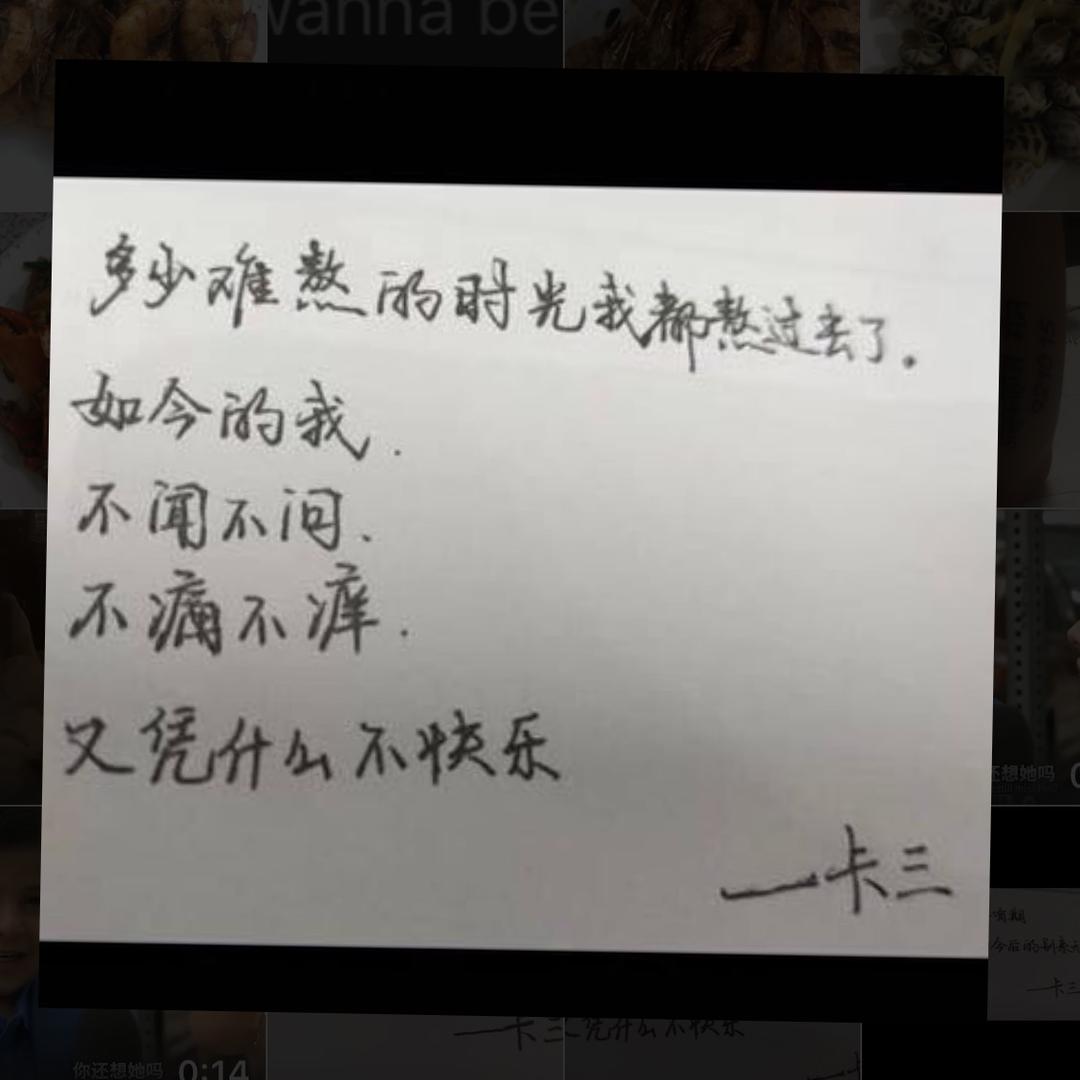 wanna be
多少难熬的时光我都熬过去了。
如今的我.
不闻不问.
不痛不痒.
又凭什么不快乐
——卡三
还想她吗
今后的别来无
——卡三
——卡三
凭什么不快乐
你还想她吗 0:14